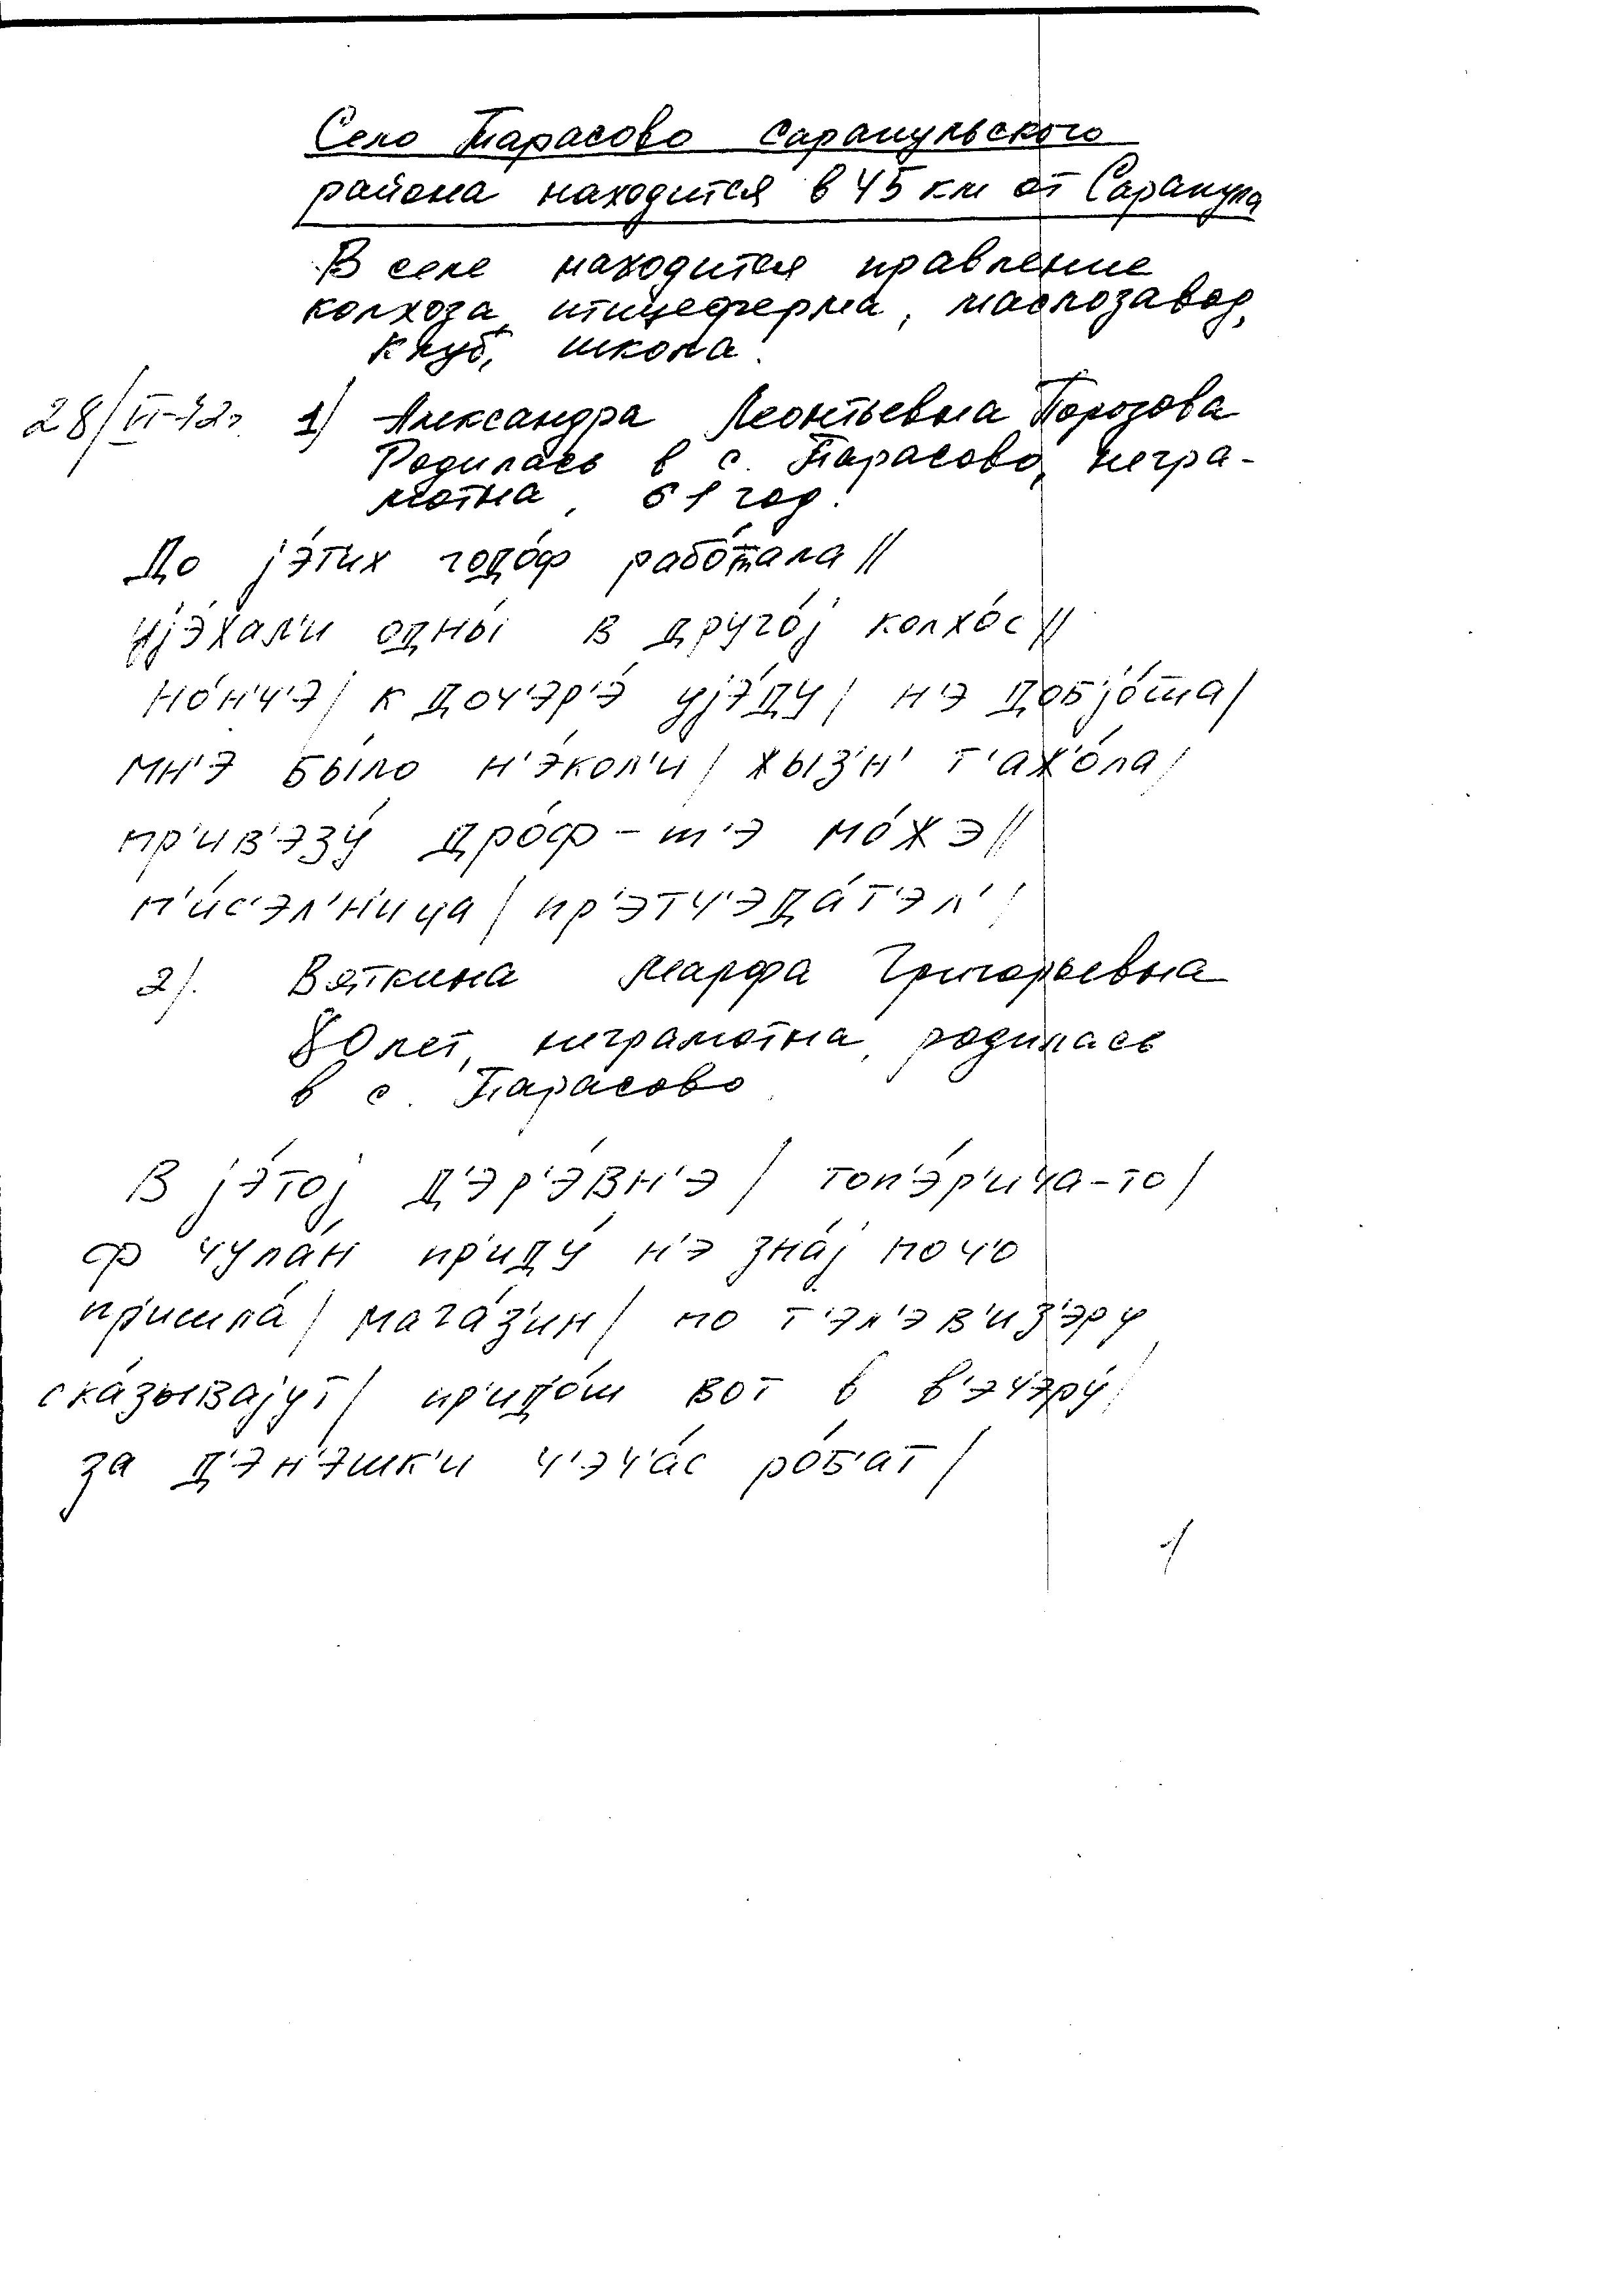 Село Тарасово Сарапульского
района находится в 45 км от Сарапула
В селе находится правление
колхоза, птицеферма, маслозавод,
клуб, школа.
28/VI-72г. 1) Александра Леонтьевна Порозова
Родилась в с. Тарасово, негра-
мотна, 61 год.
До jэ́тих годо́ф рабо́тала //
уjэ́хал'и одны́ в друго́j колхо́с //
но́н'ч'э / к доч'эр'э́ уjэ́ду / н'э доб'jо́ша /
мн'э бы́ло н'э́кол'и / жыз'н' т'ажо́ла /
пр'ив'эзу́ дро́ф-т'э мо́жэ //
п'и́с'эл'н'ица / пр'этч'эда́т'эл' /
2). Вяткина Марфа Григорьевна
80 лет, неграмотна, родилась
в с. Тарасово
В jэ́тоj д'эр'э́вн'э / топ'э́р'ича-то /
ф чула́н приду́ н'э зна́j поч'о
пришла́ / мага́з'ин / по т'эл'эв'из'эру
ска́зываjут / пр'идо́ш вот в в'эчэру́ /
за д'э́н'эшк'и ч'эч'а́с ро́б'ат /
1